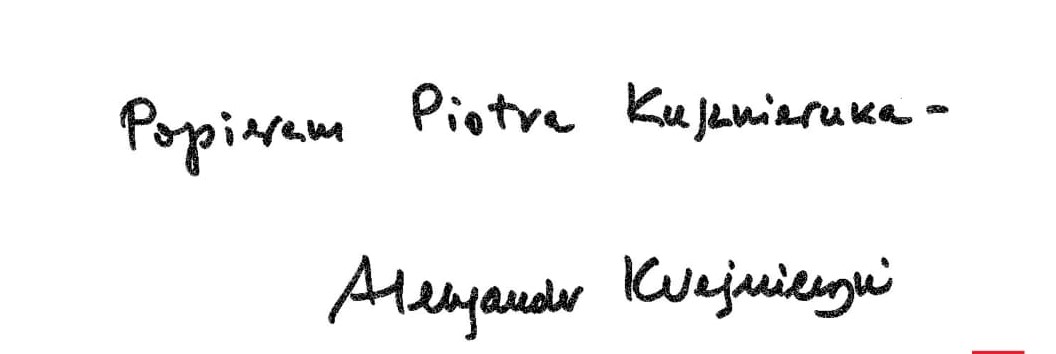 Popieram Piotra Kuśnieruka -
Aleksander Kwaśniewski